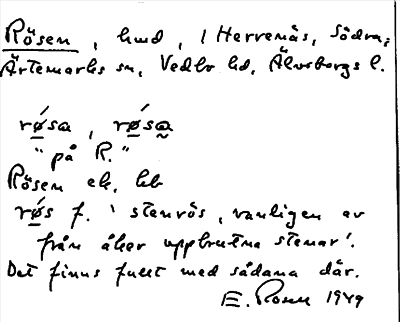 Rösen, hmd, i Herrenäs, Södra,
Ärtemarks sn, Vedbo hd, Älvsborgs l.
røsa, røsa
"på R."
Rösen ek, hb
røs f. 'stenrös, vanligen av
från åker uppbrutna stenar'.
Det finns fullt med sådana där.
E. Rosen 1949